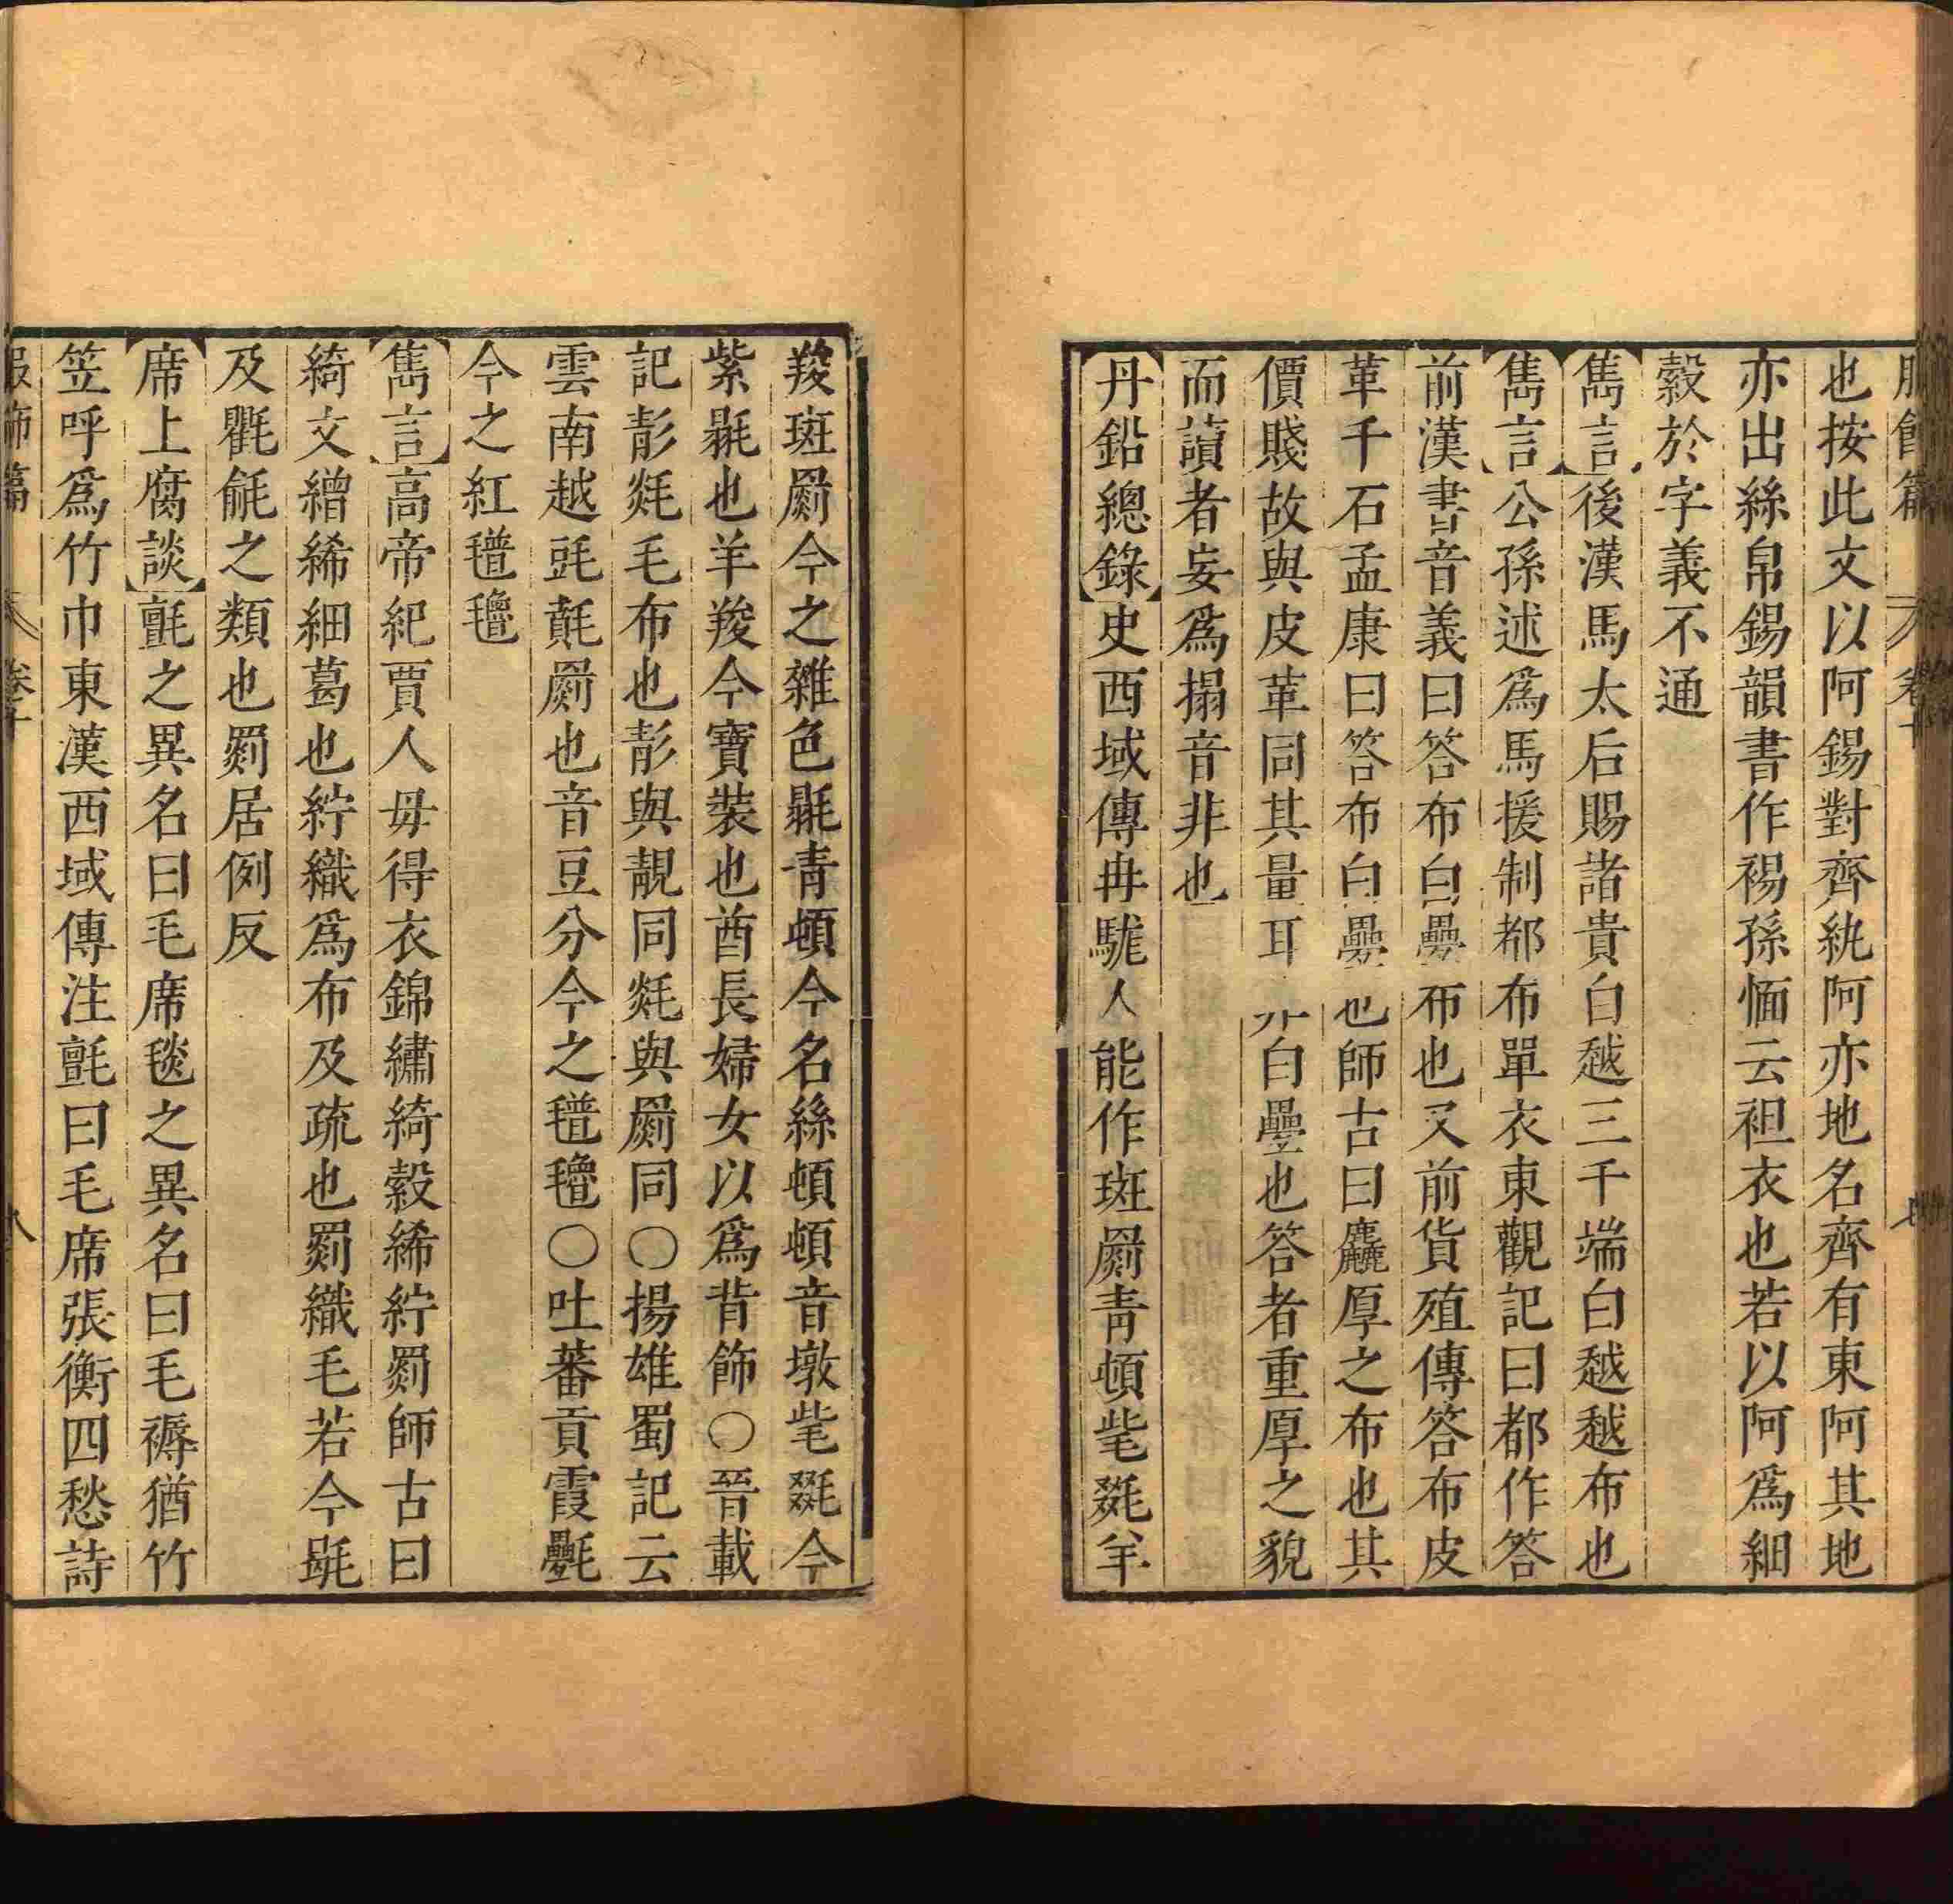 服飾篇 卷十 七
也按此文以阿錫對齊紈阿亦地名齊有東阿其地
亦出絲帛錫韻書作裼孫愐云袒衣也若以阿爲細
縠於字義不通
雋言後漢馬太后賜諸貴白越三千端白越越布也
雋言公孫述爲馬援制都布單衣東觀記曰都作答
前漢書音義曰答布白疊布也又前貨殖傳答布皮
革千石孟康曰答布白疊也師古曰麤厚之布也其
價賤故與皮革同其量耳非白疊也答者重厚之貌
而讀者妄爲搨音非也
丹鉛總錄史西域傳冉駹人能作斑罽青頓毞毲羊
羧斑罽今之雜色毼青頓今名絲頓頓音墩毞毲今
紫毼也羊羧今寶裝也酋長婦女以爲背飾○晉載
記彭毦毛布也彭與靘同毦與罽同○揚雄蜀記云
雲南越毭㲛罽也音豆分今之氆氌○吐蕃貢霞氎
今之紅氆氌
雋言高帝紀賈人毋得衣錦繡綺縠絺紵罽師古曰
綺文繒絺細葛也紵織爲布及疏也罽織毛若今毼
及氍毹之類也罽居例反
席上腐談氈之異名曰毛席毯之異名曰毛褥猶竹
笠呼爲竹巾東漢西域傳注氈曰毛席張衡四愁詩
服飾篇 卷十 八